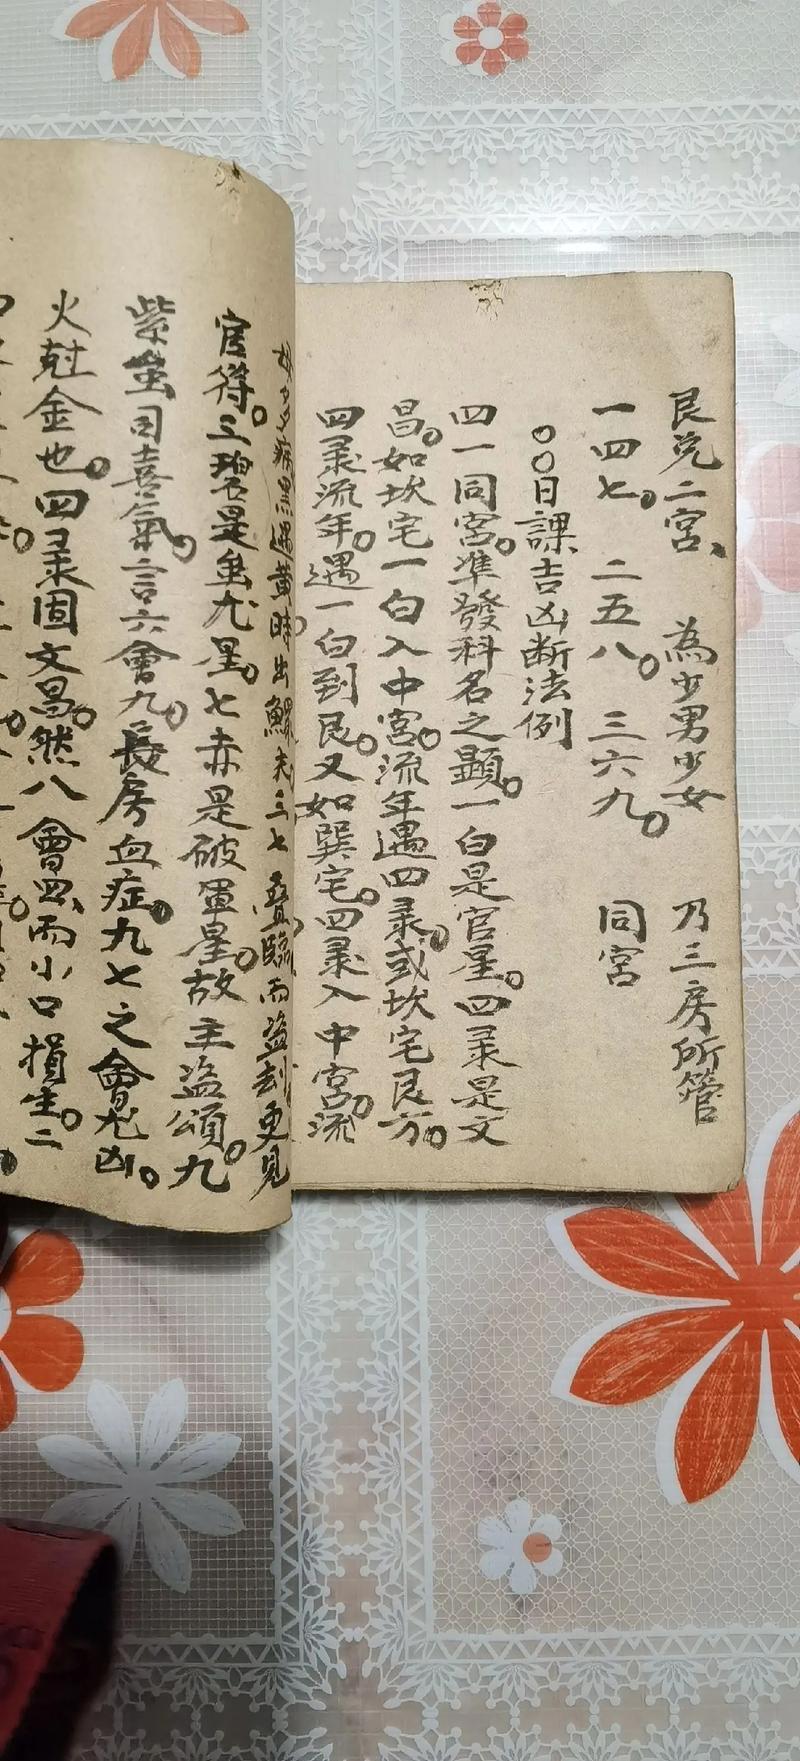 艮兌二宮、 為少男少女 乃三房所管
一四七。 二五八。 三六九。 同宮
〇〇日課吉凶断法例
四一同宮。準發科名之顯。一白是官星。四录是文
昌。如坎宅一白入中宮。流年遇四录。或坎宅艮方。
四录流年。遇一白到艮。又如巽宅。四录入中宮。流
多病黑遇黄時出鰥夫三七疊臨而盗刦更見
官符。三碧是蚩尤星。七赤是破軍星。故主盗頌。九
紫虽司喜氣。言六會九。長房血症。九七之會尤凶。
火尅金也。四录固文昌。然八會四、而小口損生。二